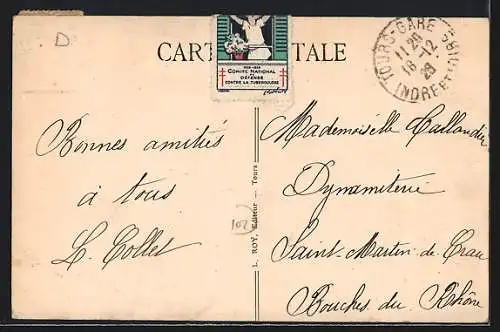 D
CARTE POSTALE
1928-1929
COMITÉ NATIONAL
DE
DÉFENSE
CONTRE LA TUBERCULOSE
TOURS-GARE
11 20
18 -12
28
INDRE ET
Bonnes amitiés
à tous
L. Collet
L. ROY, Editeur - Tours
102
Mademoiselle Caillandre
Dynamiterie
Saint-Martin de Crau
Bouches du Rhône